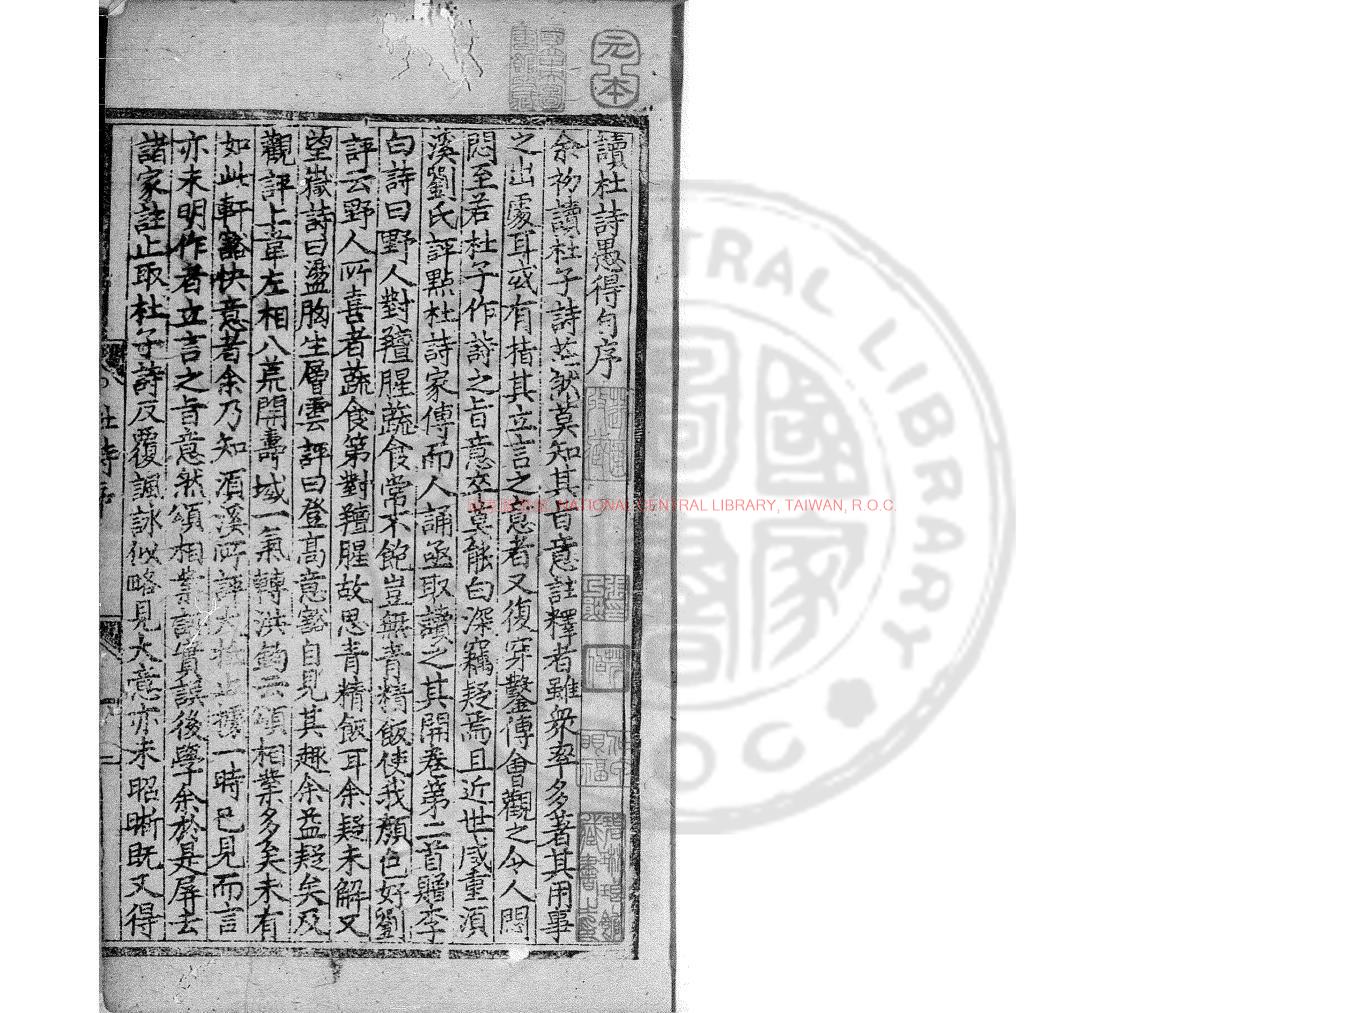 讀杜詩愚得自序
余初讀杜子詩茫然莫知其旨意註釋者雖衆率多著其用事
之出處耳或有指其立言之意者又復穿鑿傅會觀之令人悶
悶至若杜子作詩之旨意卒莫能白深竊疑焉且近世咸重湏
溪劉氏評點杜詩家傳而人誦亟取讀之其開卷第二首贈李
白詩曰野人對羶腥蔬食常不飽豈無青精飯使我顏色好劉
評云野人所喜者蔬食第對羶腥故思青精飯耳余疑未解又
望嶽詩曰盪胸生層雲評曰登高意豁自見其趣余益疑矣及
觀評上韋左相八荒開壽域一氣轉洪鈞云頌相業多矣未有
如此軒豁快意者余乃知湏溪所評大抵止據一時已見而言
亦未明作者立言之旨意然頌相業誠實誤後學余於是屏去
諸家註止取杜子詩反覆諷詠似略見大意亦未昭晰既又得
杜詩序
元本
NATIONAL CENTRAL LIBRARY, TAIWAN, R.O.C.